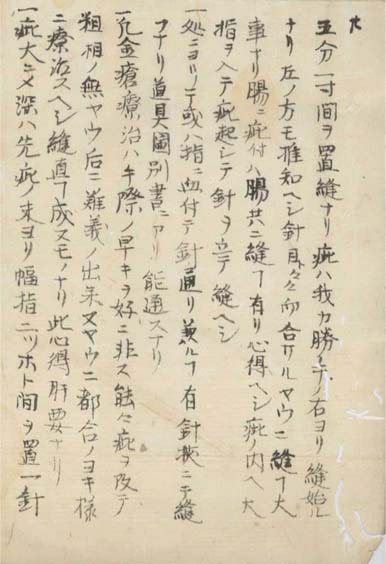 大
五分一寸間ヲ置縫ナリ疵ハ我カ勝手ノ右ヨリ縫始ル
ナリ左ノ方モ准知ヘシ針目々々向合サルヤウニ縫フ大
事ナリ腸ニ疵付ハ腸ノ共ニ縫フ有リ心得ヘシ疵ノ内ヘ大
指ヲ入テ疵起シテ針ヲ立テ縫ヘシ
一処ニヨリテ或ハ指ニ血付テ針通リ兼ルフ有針挾ニテ縫
フナリ道具圖別書ニアリ能通スナリ
一凡金瘡療治ハキ際ノ早キヲ好ニ非ス能々疵ヲ改テ
粗相ノ無ヤウ后ニ難義ノ出来ヌヤウニ都合ノヨキ様
ニ療治スヘシ縫直フ成ヌモノナリ此心得肝要ナリ
一疵大ニメ深ハ先疵ノ末ヨリ幅指二ツホト間ヲ置一針